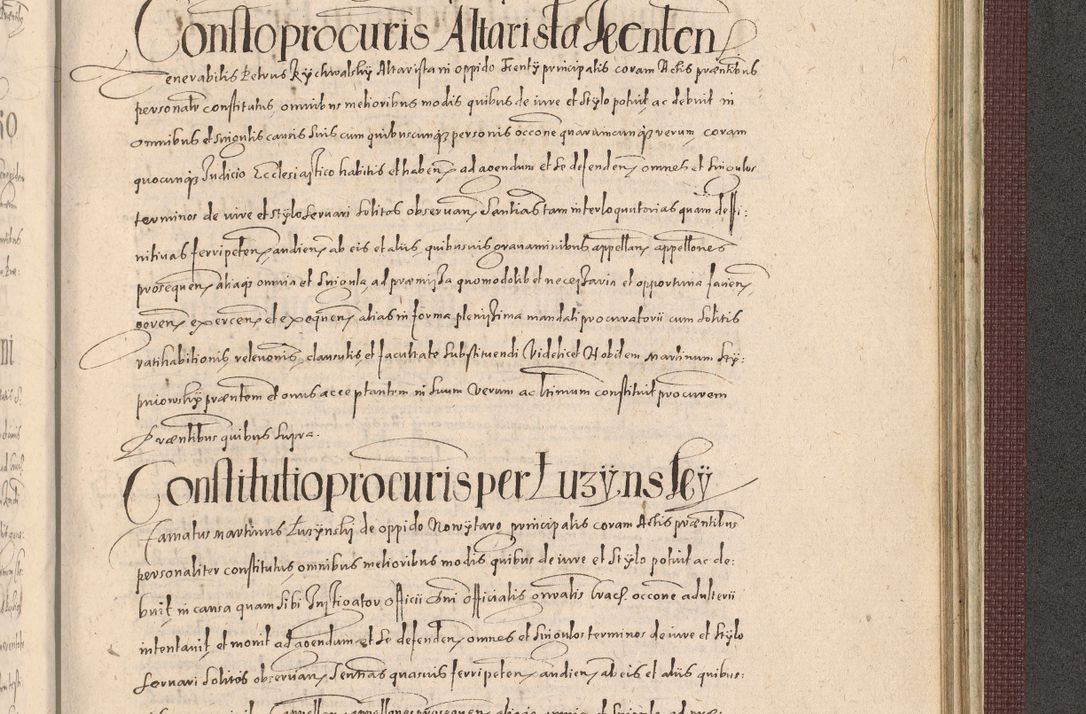 Constoprocuris Altarista Icenten
Venerabilis Petrus Rÿchwalskÿ Altarista in oppido Iccntÿ principalis coram Actis præntibus
personalr constitutus, omnibus melioribus modis quibus de iure et stÿlo potuit ac debuit in
omnibus et singulis causis suis cum quibuscunqz personis occone quarumcunqz verum coram
quocunqz Iudicio Ecclesiastico habitis et haben ad agendum et se defenden omnes et singulos
terminos de iure et stÿlo servari solitos observan Santias tam interloquutorias quam deffi:
nitivas ferri peten, audien ab eis et aliis quibusvis gravaminibus appellan, appellones
prosequen, aliaqz omnia et singula ad præmissa quomodolibet necessaria et opportuna facien,
geren, exercen, et exequen, alias in forma plenissima mandati procuratorii cum solitis
ratihabitionis, relevonis, clausulis et facultate substituendi Videlicet Nobilem Martinum
præntem et onus acceptantem in suum verum ac ltimum constituit procurem
Præntibus quibus supra.
Constitutio procuris per Łuzÿnskÿ
Famatus Martinus Łuzÿnskÿ de oppido Nowÿtarg principalis coram Actis præntibus
personaliter constitutus omnibus melioribus modis quibus de iure et stÿlo potuit ac de:
buit in causa quam sibi Instigator officii Dni Officialis gnralis Crac. occone adulterii
intentavit et movit ad agendum et se defenden, omnes et singulos terminos de iure et stÿlo
servari solitos observan, Sentias quasvis ferri peten, audien, ab eis et aliis quibus: